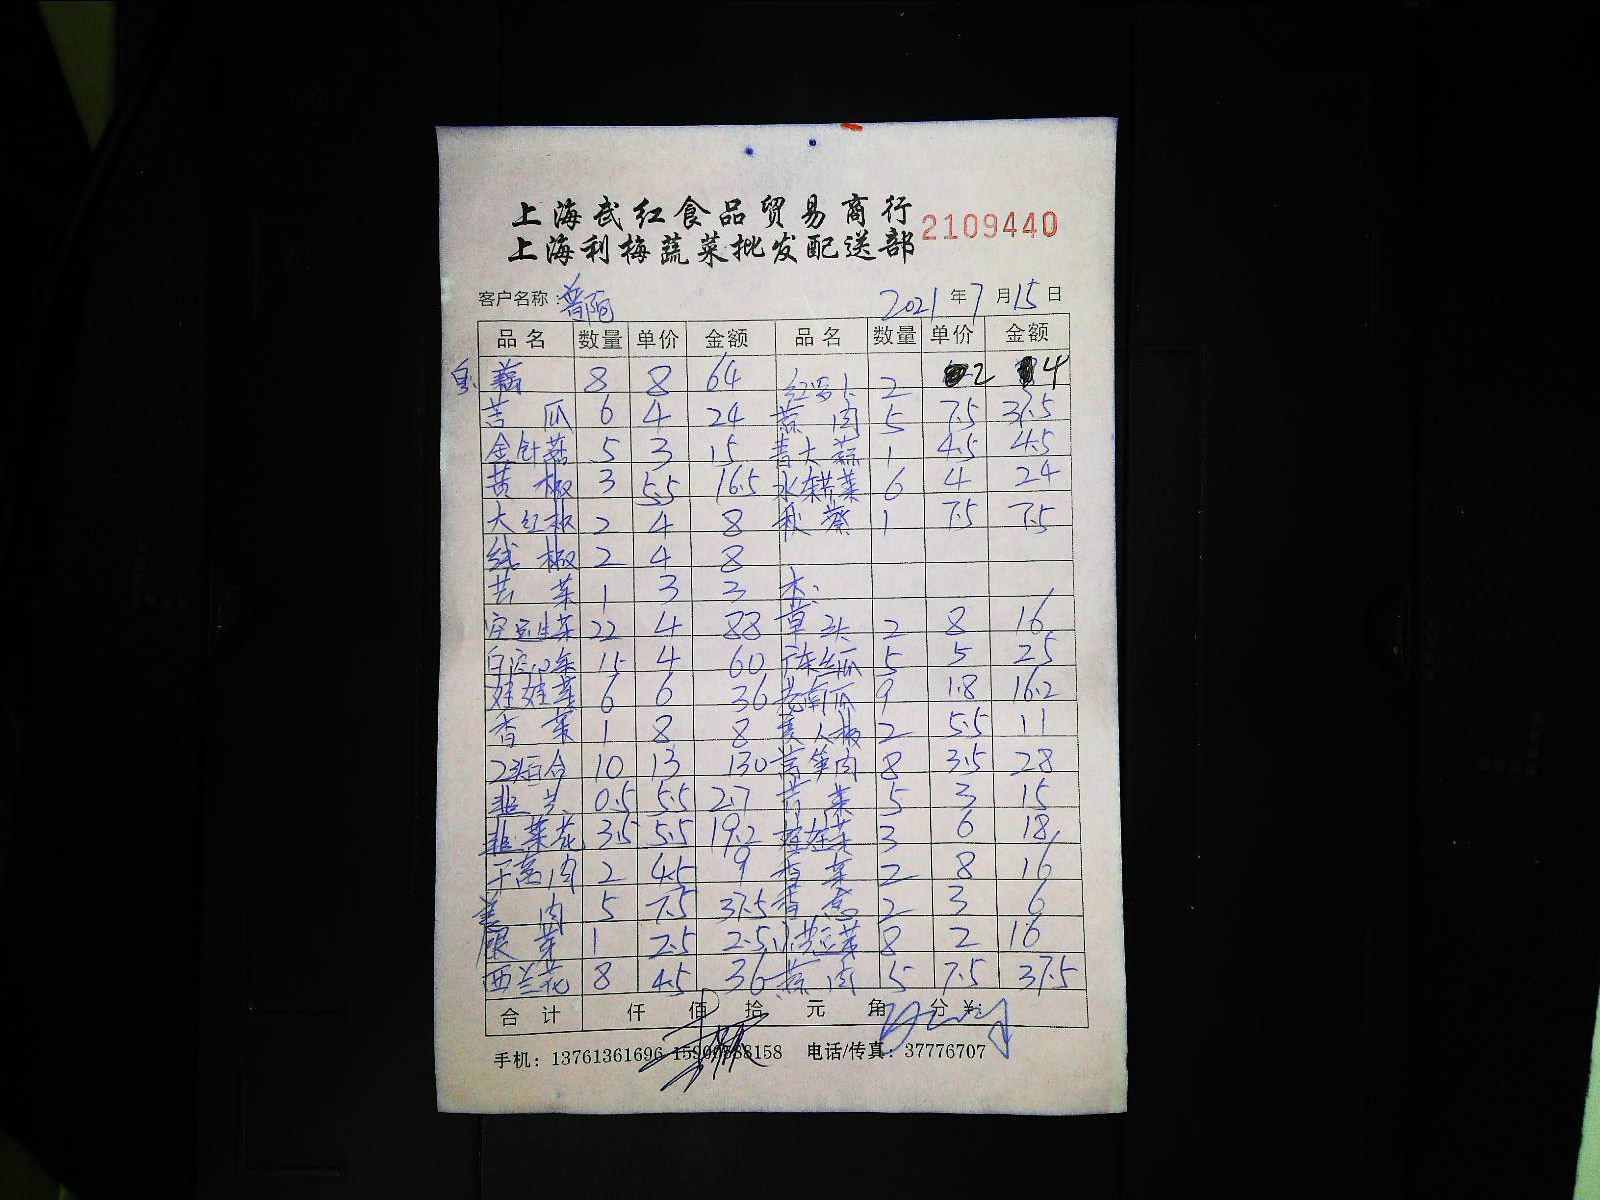 上海武红食品贸易商行
2109440
上海利梅蔬菜批发配送部
客户名称： 2021年7月15日
品名 数量 单价 金额 品名 数量 单价 金额
藕 8 8 64 2 2 4
苦瓜 6 4 24 蒜肉 5 7.5 37.5
金针菇 5 3 15 青大蒜 1 4.5 4.5
黄椒 3 5.5 16.5 水芹菜 6 4 24
大红椒 2 4 8 秋葵 1 7.5 7.5
线椒 2 4 8
菜 1 3 3
生菜 22 4 88 草头 2 8 16
白菜 15 4 60 广东丝瓜 5 5 25
娃娃菜 6 6 36 老南瓜 9 1.8 16.2
香菜 1 8 8 美人椒 2 5.5 11
2头百合 10 13 130 莴笋肉 8 3.5 28
韭芽 0.5 5.5 2.7 菜 5 3 15
韭菜花 3.5 5.5 19.2 娃娃菜 3 6 18
2 4.5 9 香菜 2 8 16
肉 5 7.5 37.5 香葱 2 3 6
银芽 1 2.5 2.5 黄豆芽 8 2 16
西兰花 8 4.5 36 蒜肉 5 7.5 37.5
合计 仟 佰 拾 元 角 分
手机：13761361696 电话/传真：37776707